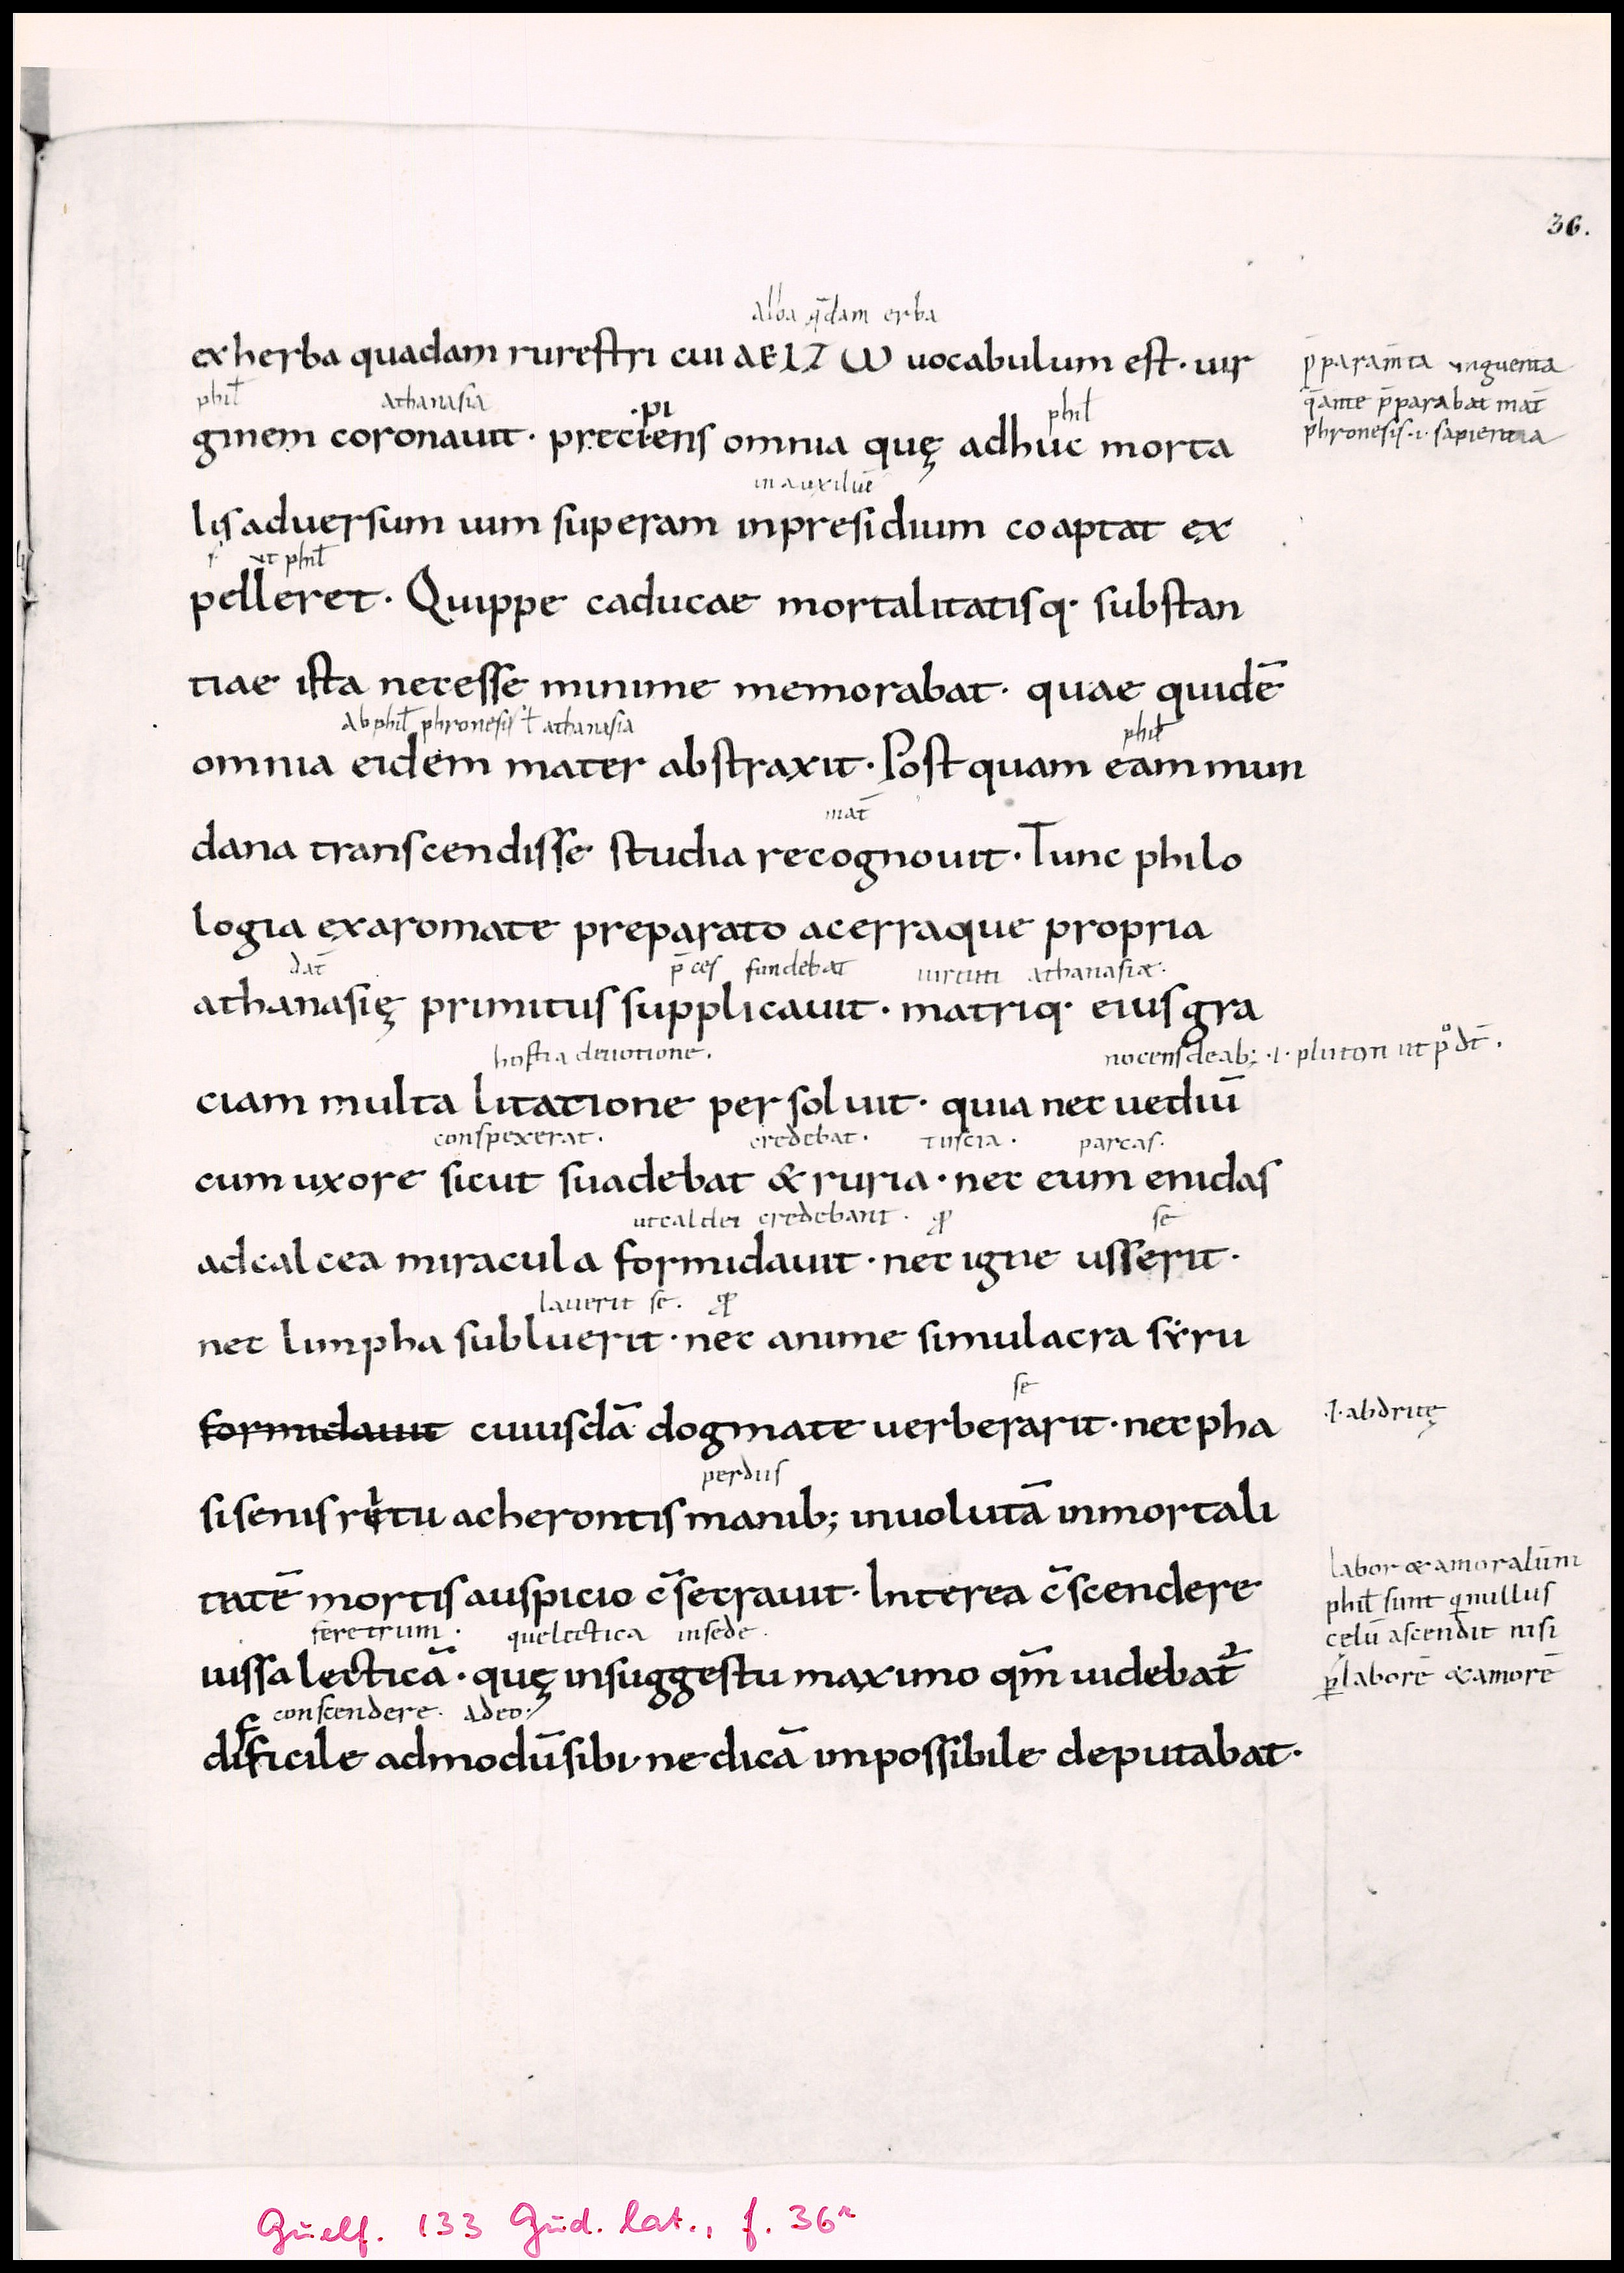 36.
alba q̄dam erba
ex herba quadam rurestri cui ΑΕΙΖ Ѡ uocabulum est · uir
p̄param̄ta unguenta
q̄ ante p̄parabat mat̄
phronesis ·i· sapientia
phil̄ athanasia ·pi phil̄
ginem coronauit · preciens omnia quę adhuc morta
in auxiliū
lis aduersum uim superam inpresidium coaptat ex
ut phil̄
pelleret · Quippe caducae mortalitatisq· substan
tiae ista necesse minime memorabat · quae quidē
ab phil̄ phronesis ł athanasia phil̄
omnia eidem mater abstraxit · Postquam eam mun
mat̄
dana transcendisse studia recognouit · Tunc philo
logia ex aromate preparato acerraque propria
dat̄ p̄ces fundebat uirtuti athanasiæ·
athanasię primitus supplicauit · matriq· eius gra
hostia deuotione. nocens deab; ·i· pluton ut p̊ dt̄ .
ciam multa litatione persoluit · quia nec uediū
conspexerat. credebat. tuscia. parcas.
cum uxore sicut suadebat & ruria · nec eumenidas
ut caldei credebant. sē
ad calcea miracula formidauit · nec igne usserit ·
lauerit sē.
nec limpha subluerit · nec anime simulacra sẏru
sē
formidauit cuiusdā dogmate uerberarit · nec pha
·i· abdritę
perdus
si senis ritu acherontis manib; inuolutā inmortali
tatē mortis auspicio c̄secrauit · Interea c̄scendere
labor & amor alūm
phil̄ sunt q nullus
cęlū ascendit nisi
p̱ laborē & amorē
feretrum. que lectica in sede.
iussa lecticā · quę insuggestu maximo qm̄ uidebat᷑
conscendere. adeo.
dificile admodū sibi · ne dicā inpossibile deputabat ·
Guelf. 133 Gud. lat., f. 36r